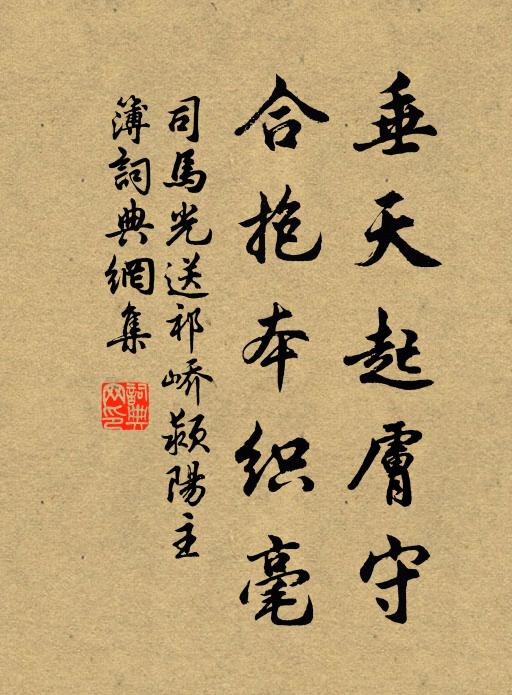 垂天起膚守
合抱本织毫
司馬光送祁嶠潁陽主
簿詞典網集
詞典
网印